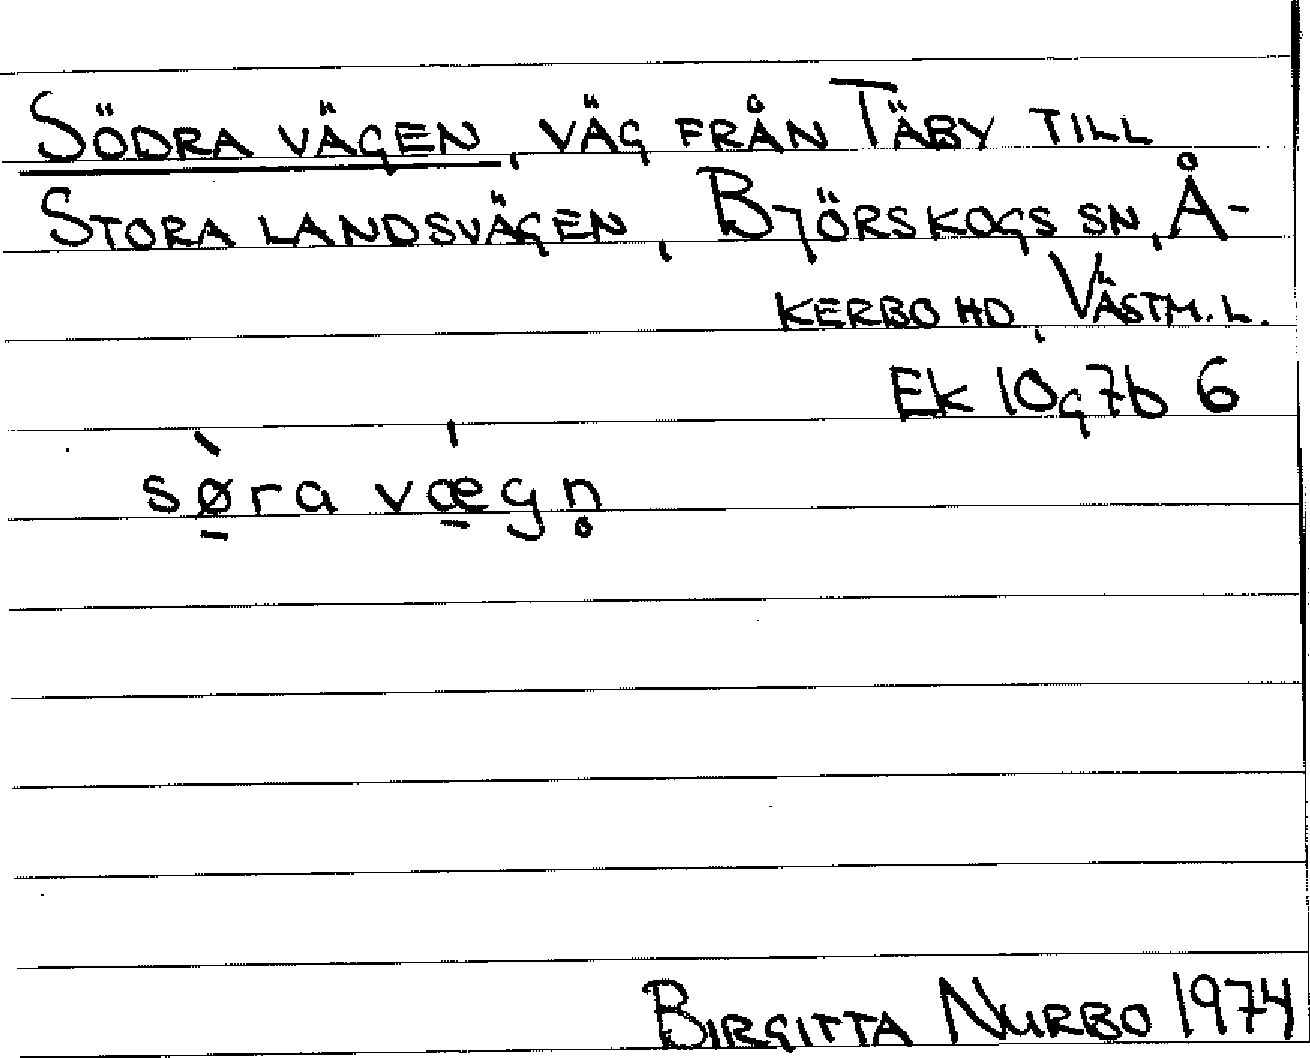 Södra vägen, väg från Täby till
Stora landsvägen, Björskogs sn, Å-
kerbo hd, Västm. l.
Ek 10g7b 6
sø̱̀ra vǽ̱gn̥
Birgitta Nurbo 1974